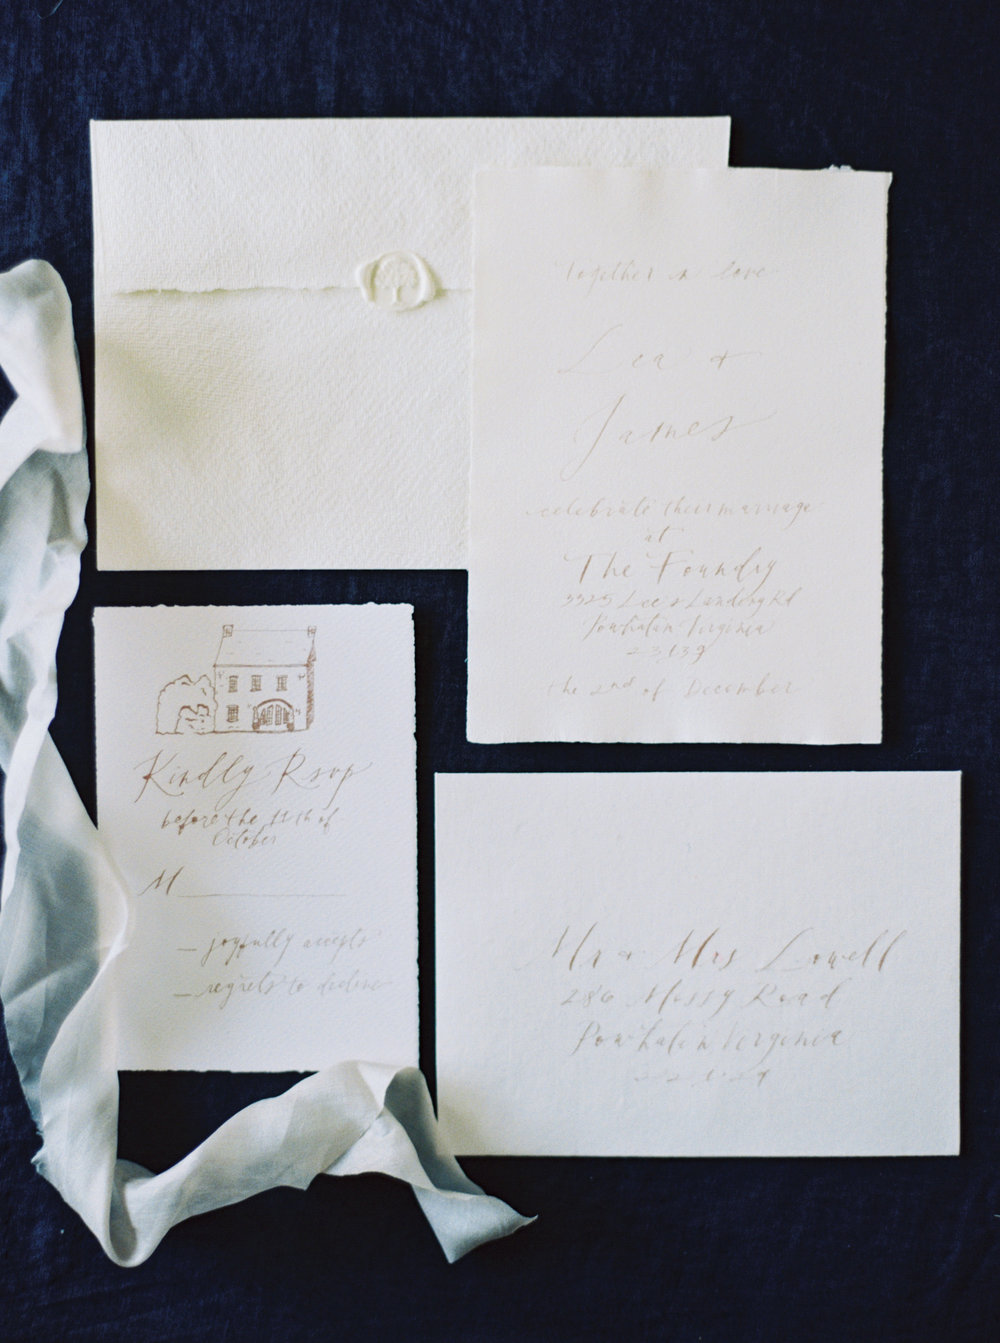 together in love
Lea &
James
celebrate their marriage
at
The Foundry
3325 Lee's Landing Rd
Powhatan Virginia
23139
the 2nd of December
Kindly Rsvp
before the 11th of
October
M
joyfully accepts
regrets to decline
Mr & Mrs Lowell
286 Mossy Road
Powhatan Virginia